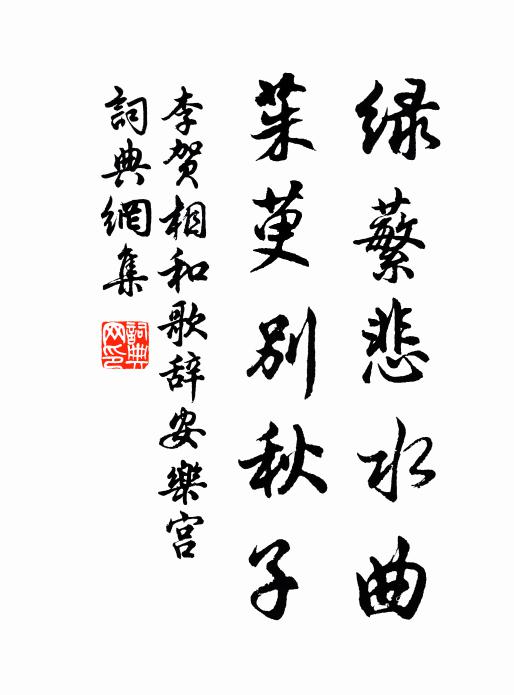 绿蘩悲水曲
茱萸别秋子
李贺相和歌辞安樂宫
詞典網集
詞典網印